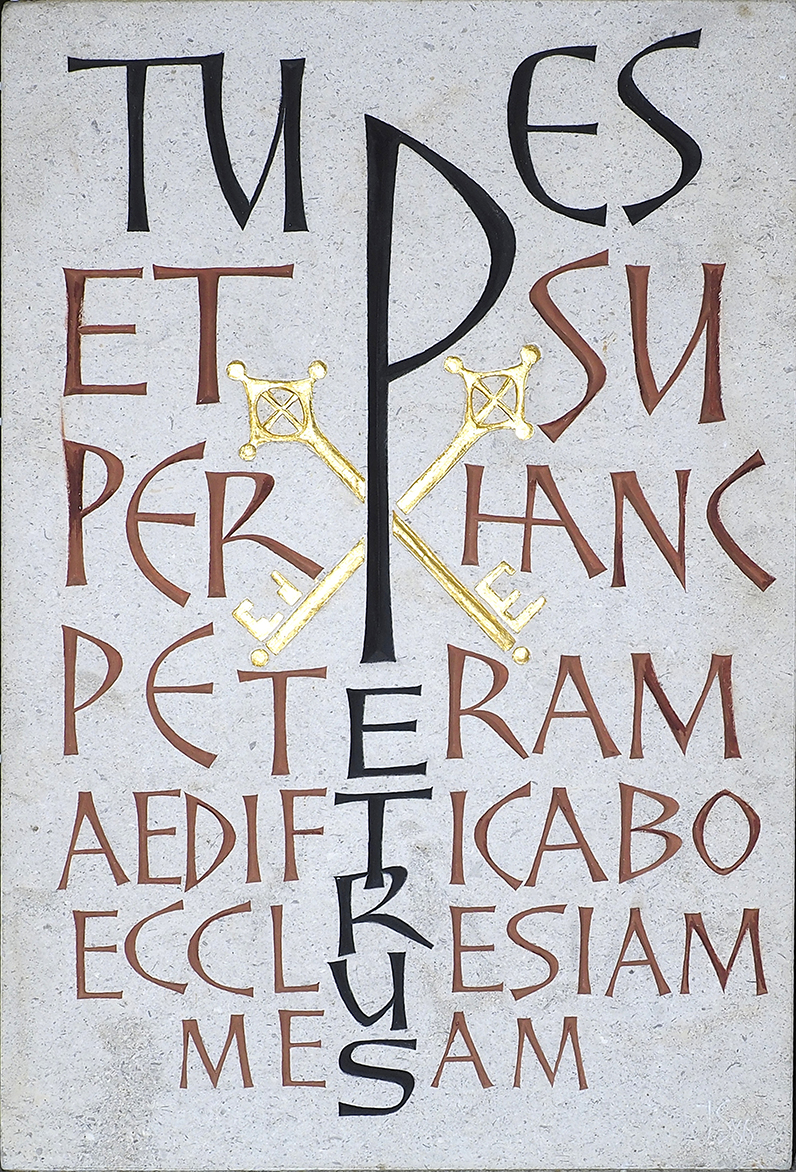 TU ES
PETRUS
ET SU
PER HANC
PETRAM
AEDIFICABO
ECCLESIAM
MEAM